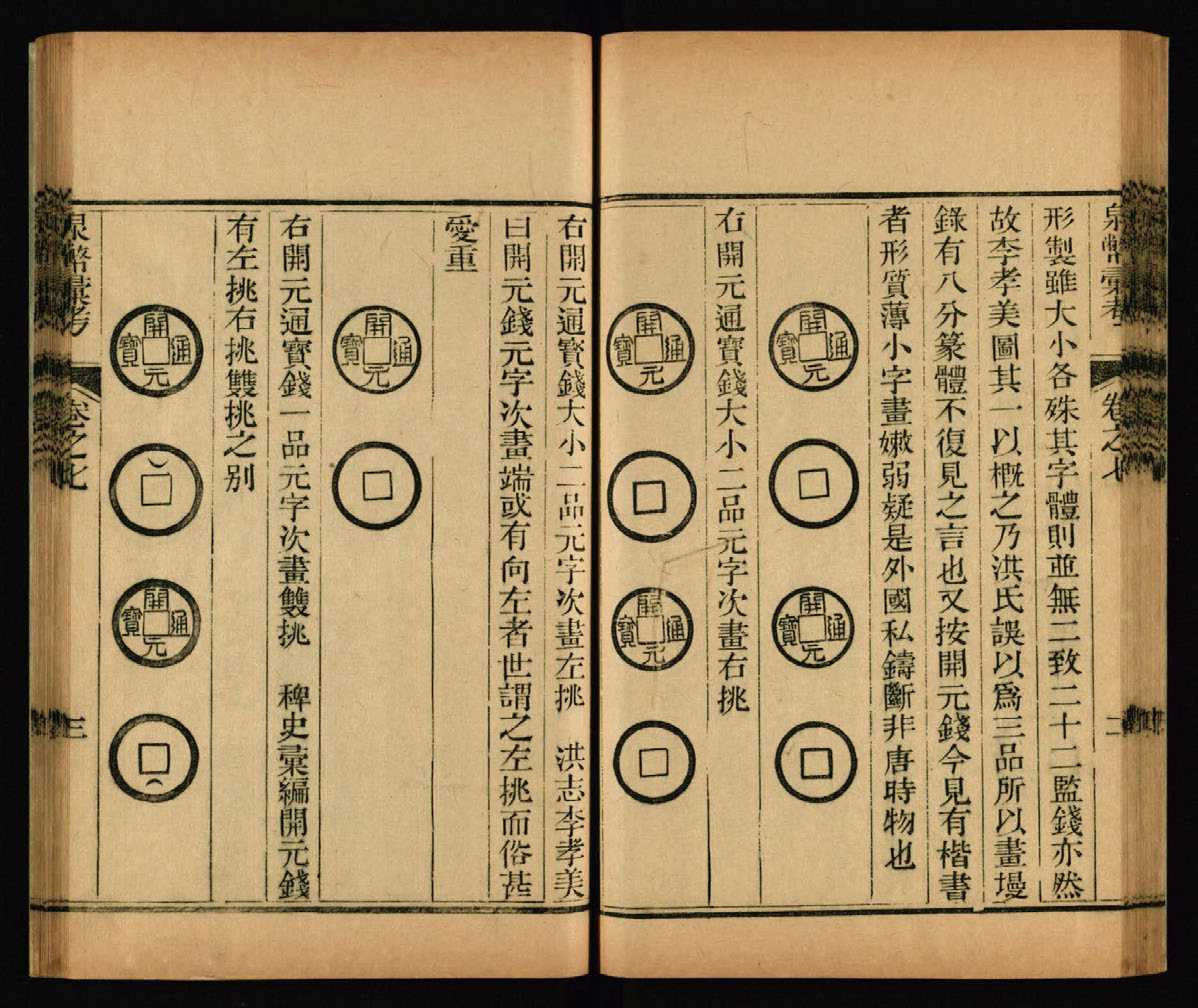 泉幣彙考
卷之七
二
形製雖大小各殊其字體則並無二致二十二監錢亦然
故李孝美圖其一以概之乃洪氏誤以爲三品所以畫墁
錄有八分篆體不復見之言也又按開元錢今見有楷書
者形質薄小字畫嫩弱疑是外國私鑄斷非唐時物也
開元通寶
開元通寶
右開元通寶錢大小二品元字次畫右挑
開元通寶
開元通寶
右開元通寶錢大小二品元字次畫左挑 洪志李孝美
曰開元錢元字次畫端或有向左者世謂之左挑而俗甚
愛重
開元通寶
右開元通寶錢一品元字次畫雙挑 稗史彙編開元錢
有左挑右挑雙挑之別
開元通寶
開元通寶
泉幣彙考
卷之七
三